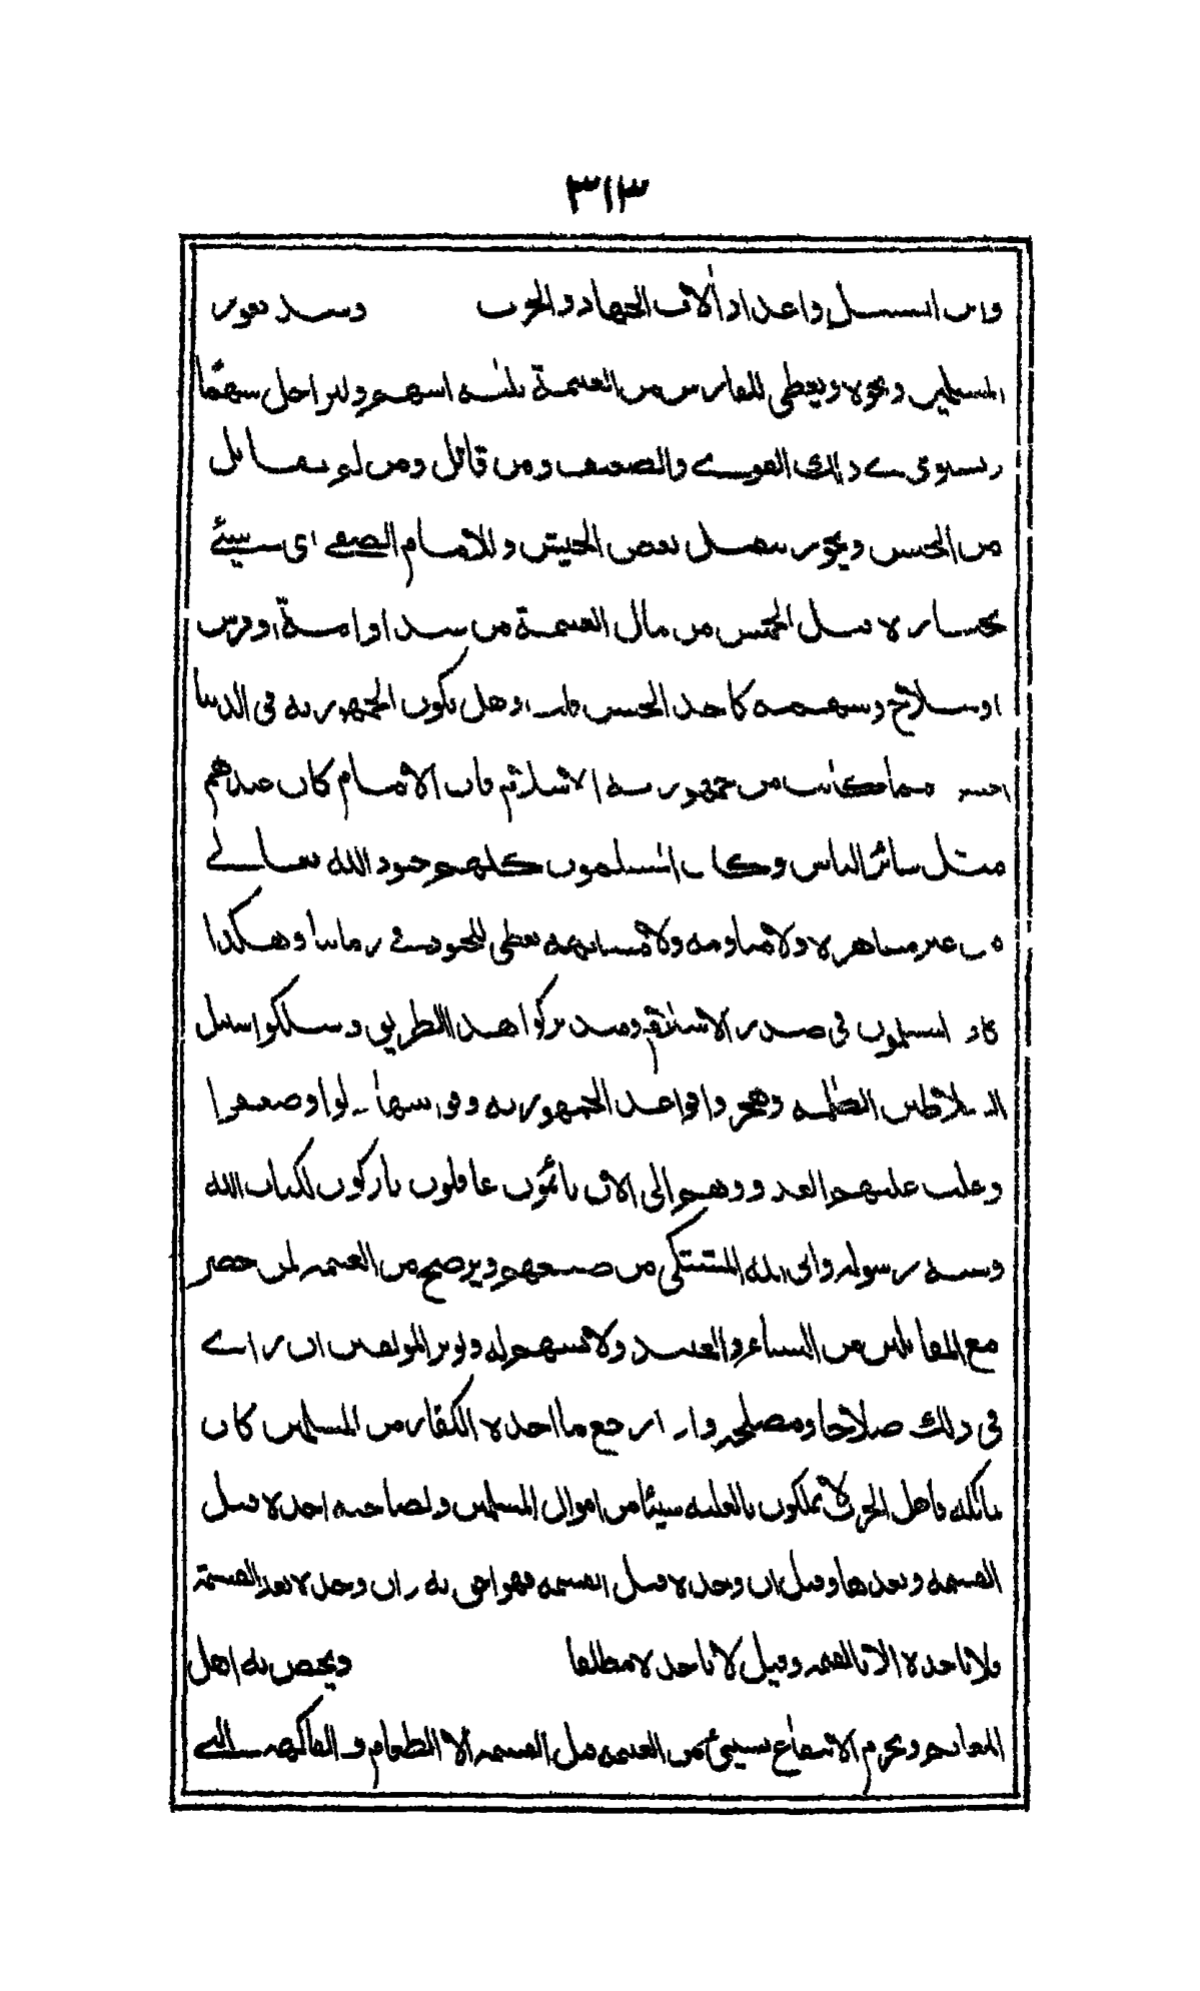 ٣١٣
وابن السبيل واعداد آلات الجهاد والحرب وسد ثغور
المسلمين ونحوه ويعطى للفارس من الغنيمة ثلثة اسهم وللراجل سهمًا
ويستوى فى ذلك القوى والضعيف ومن قاتل ومن لم يقاتل
من الجيش ويجوز تنفيل بعض الجيش وللامام الصفى اى شيئ
يختاره قبل الخمس من مال الغنيمة من سيد او امة او فرس
او سلاح وسهمه كاحد الجيش وهل يكون الجمهورية فى الدنيا
احسن مما كانت من جمهورية الاسلام فان الامام كان عندهم
مثل سائر الناس وكان المسلمون كلهم جنود الله تعالى
من غير مشاهرة ولا مياومة ولا مسانهة يعطى للجنود فى زماننا وهكذا
كان المسلمون فى صدر الاسلام وقد تركوا هذا الطريق وسلكوا سبيل
السلاطين الظلمة وهجروا قواعد الجمهورية وقوانينها وضعفوا
وغلب عليهم العدو وهم الى الآن نائمون غافلون تاركون لكتاب الله
وسنة رسوله والى الله المشتكى من صنيعهم ويرضخ من الغنيمة لمن حضر
مع المقاتلين من النساء والعبيد ولا يسهم له ويوثر المؤلفين ان راى
فى ذلك صلاحا ومصلحة واذا رجع ما اخذه الكفار من المسلمين كان
مالكه فاهل الحرب لا يملكون بالغلبة شيئا من اموال المسلمين ولصاحبه اخذه قبل
القسمة وبعدها وقيل ان وجده قبل القسمة فهو احق به وان وجده بعد القسمة
فلا ياخذه الا بالقيمة وقيل لا ياخذه مطلقا ويختص به اهل
المغانم ويحرم الانتفاع بشيئ من الغنيمة قبل القسمة الا الطعام والفاكهة التى